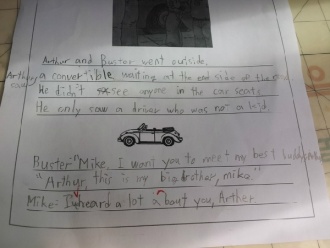 Arthur and Buster went outside.
Arthur saw a convertible waiting at the end side of the
He didn't see anyone in the car seats
He only saw a driver who was not a kid.
Buster: "Mike, I want you to meet my best buddy
"Arthur, this is my big brother, mike."
Mike: I heard a lot about you, Arther